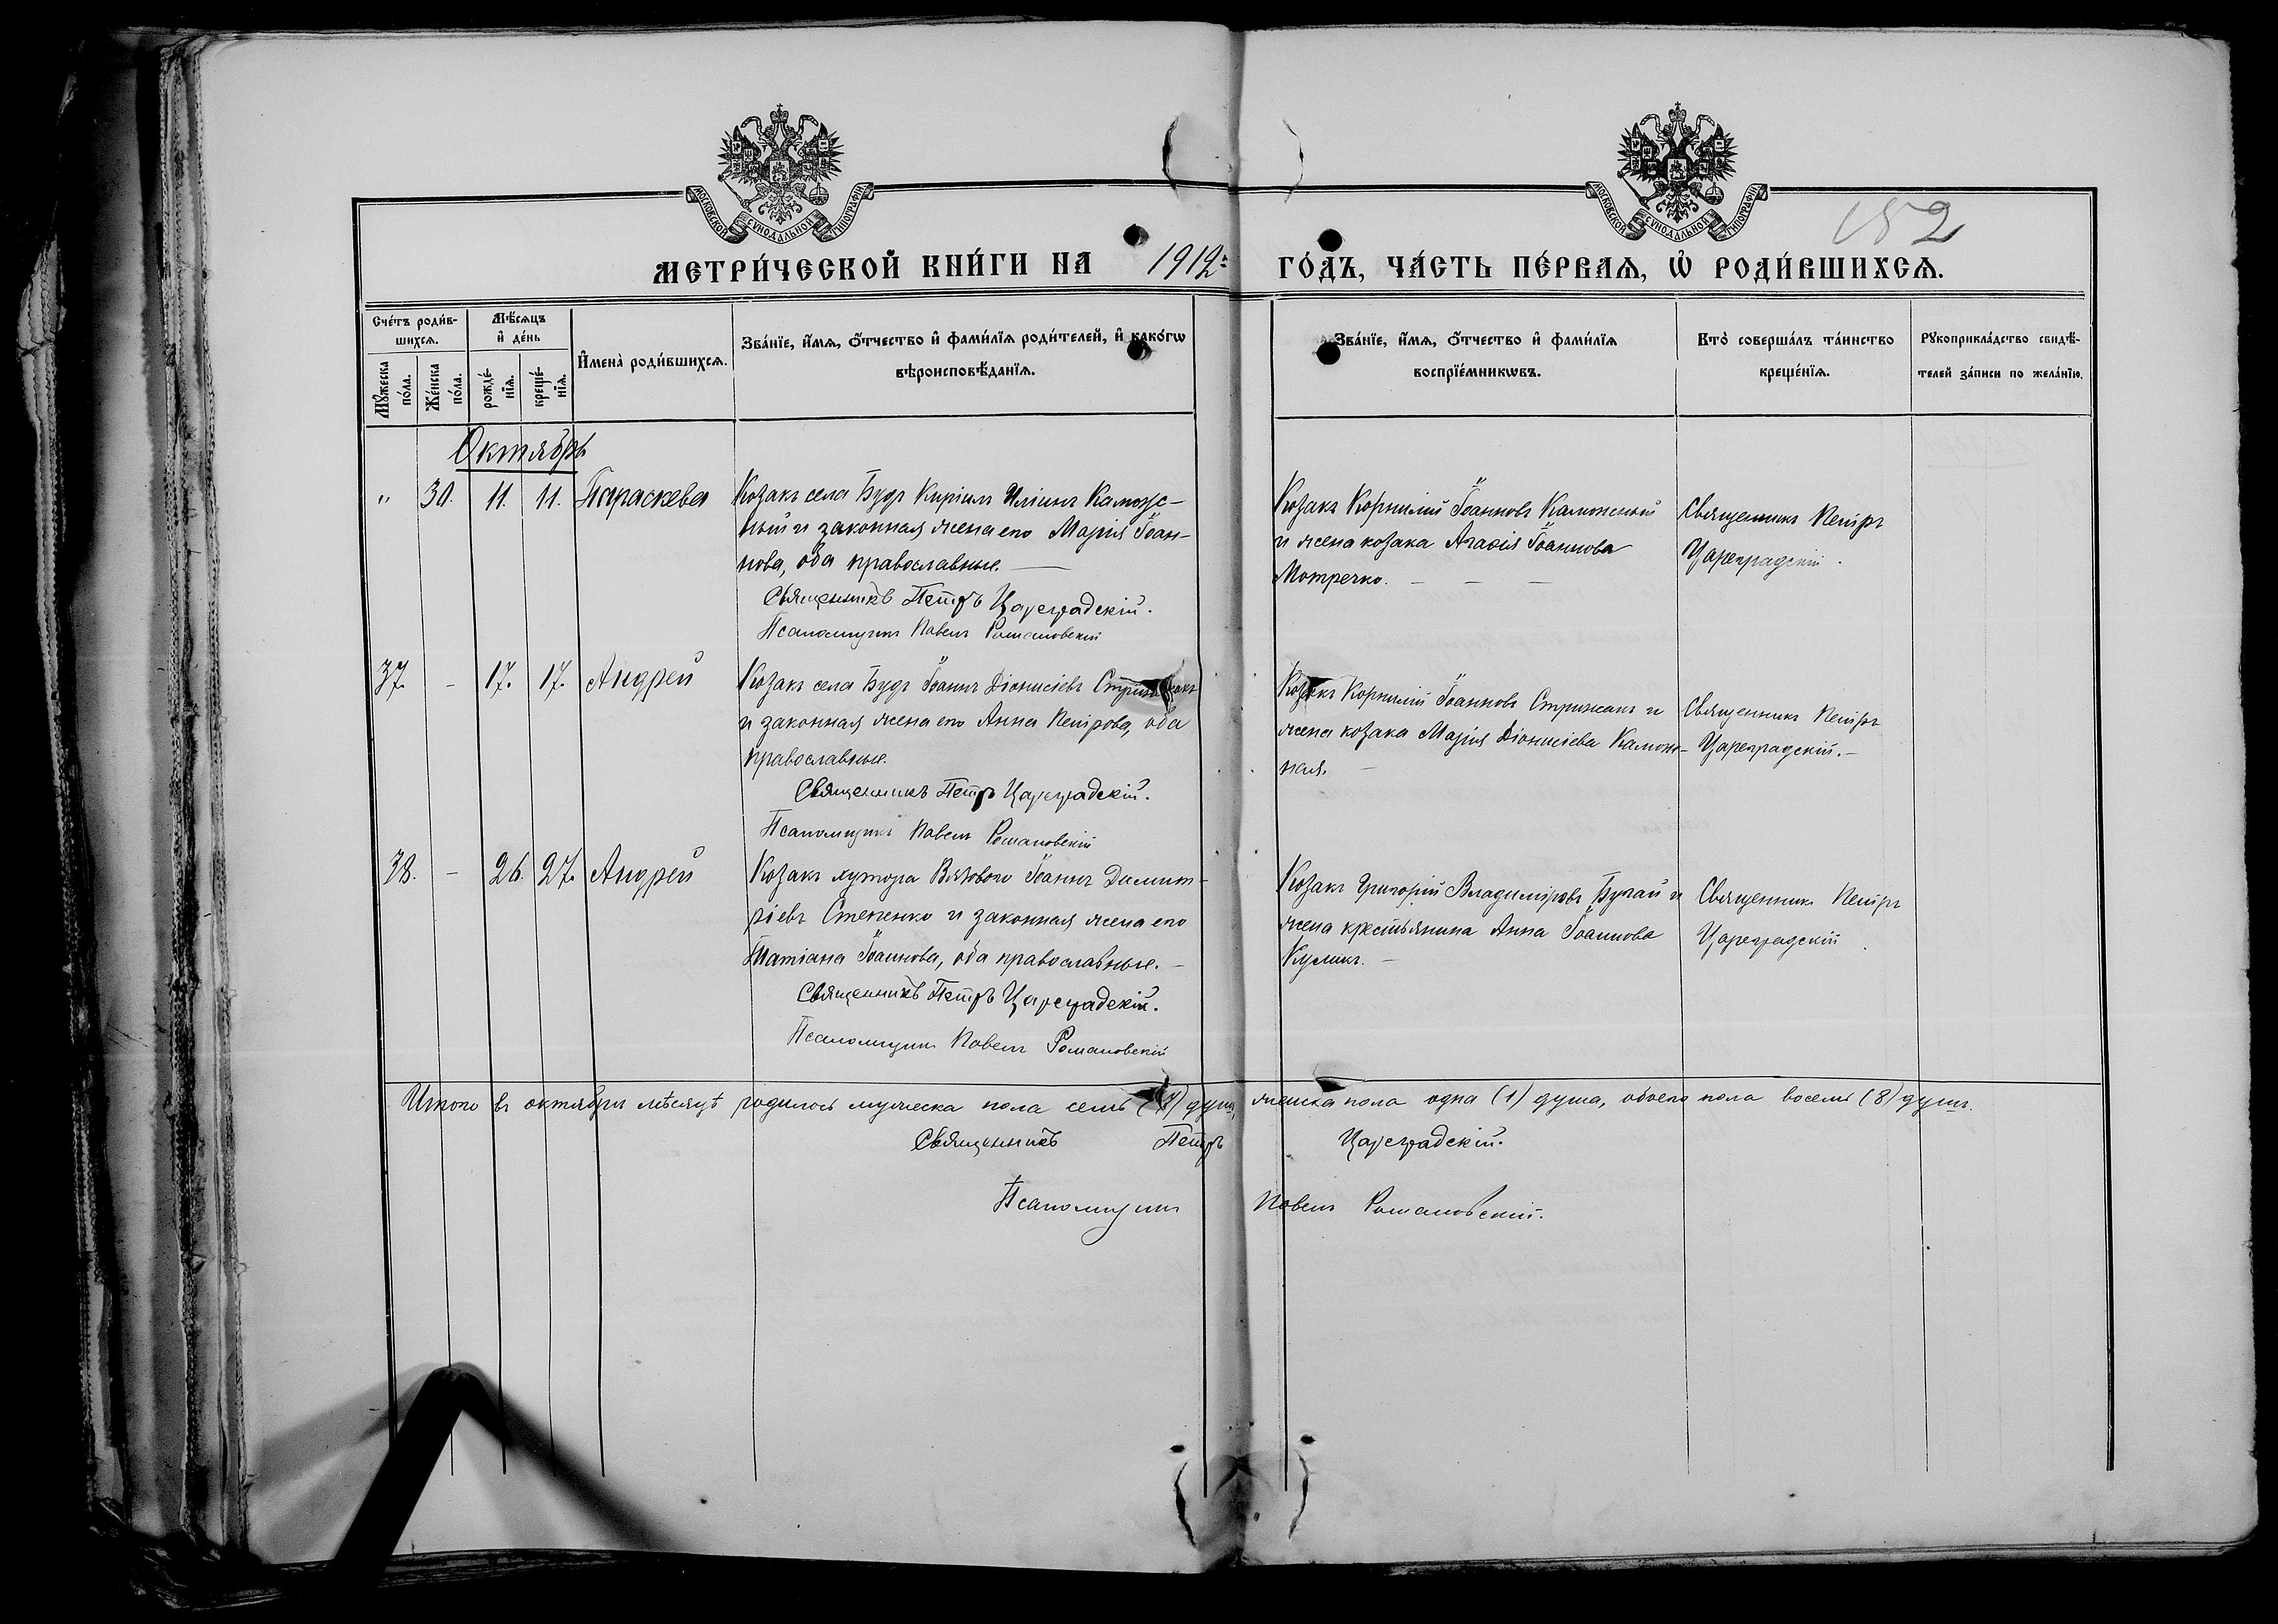 МОСКОВСКОЙ СѴНОДАЛЬНОЙ ТИПОГРАФІИ
МОСКОВСКОЙ СѴНОДАЛЬНОЙ ТИПОГРАФІИ
152
МЕТРИ́ЧЕСКОЙ КНИ́ГИ НА 1912 ГО́ДЪ, ЧА́СТЬ ПЕ́РВАѦ, Ѡ РОДИ́ВШИХСѦ.
Сче́тъ роди́в-
шихсѧ.
Мꙋжеска по́ла.
Же́нска по́ла.
Мѣ́сѧцъ
и҆ де́нь
рожде́-
нїѧ.
креще́-
нїѧ.
И҆мена̀ роди́вшихсѧ.
Зва́нїе, и҆́мѧ, ѻ҆́тчество и҆ фами́лїѧ роди́телей, и҆ како́гѡ
вѣроисповѣ́данїѧ.
Зва́нїе, и҆́мѧ, ѻ҆́тчество и҆ фами́лїѧ
воспрїе́мникѡвъ.
Кто̀ соверша́лъ та́инство
креще́нїѧ.
Рꙋкоприкла́дство свидѣ́-
телей за́писи по жела́нїю.
Октябрь
" 30. 11. 11. Параскева
Козакъ села Будъ Кирилъ Иліинъ Калюж-
ный и законная жена его Марія Іоан-
нова, оба православные.
Священникъ Петръ Цареградскій.
Псаломщикъ Павелъ Романовскій
Козакъ Корнилій Іоанновъ Калюжный
и жена козака Агаѳія Іоаннова
Мотречко.
Священникъ Петръ
Цареградскій.
37. - 17. 17. Андрей
Козакъ села Будъ Іоаннъ Діонисіевъ
и законная жена его Анна Петрова, оба
православные.
Священникъ Петръ Цареградскій.
Псаломщикъ Павелъ Романовскій
Козакъ Корнилій Іоанновъ Стрижакъ и
жена козака Марія Діонисіева Калюж-
ная.
Священникъ Петръ
Цареградскій.
38. - 26. 27. Андрей
Козакъ хутора Вязового Іоаннъ Димит-
ріевъ Степенко и законная жена его
Татіана Іоаннова, оба православные.
Священникъ Петръ Цареградскій.
Псаломщикъ Павелъ Романовскій
Козакъ Григорій Владиміровъ Бугай и
жена крестьянина Анна Іоаннова
Куликъ.
Священникъ Петръ
Цареградскій
Итого въ октябрѣ мѣсяцѣ родилось мужеска пола семь (7) душъ, женска пола одна (1) душа, обоего пола восемь (8) душъ.
Священникъ Петръ Цареградскій.
Псаломщикъ Павелъ Романовскій.